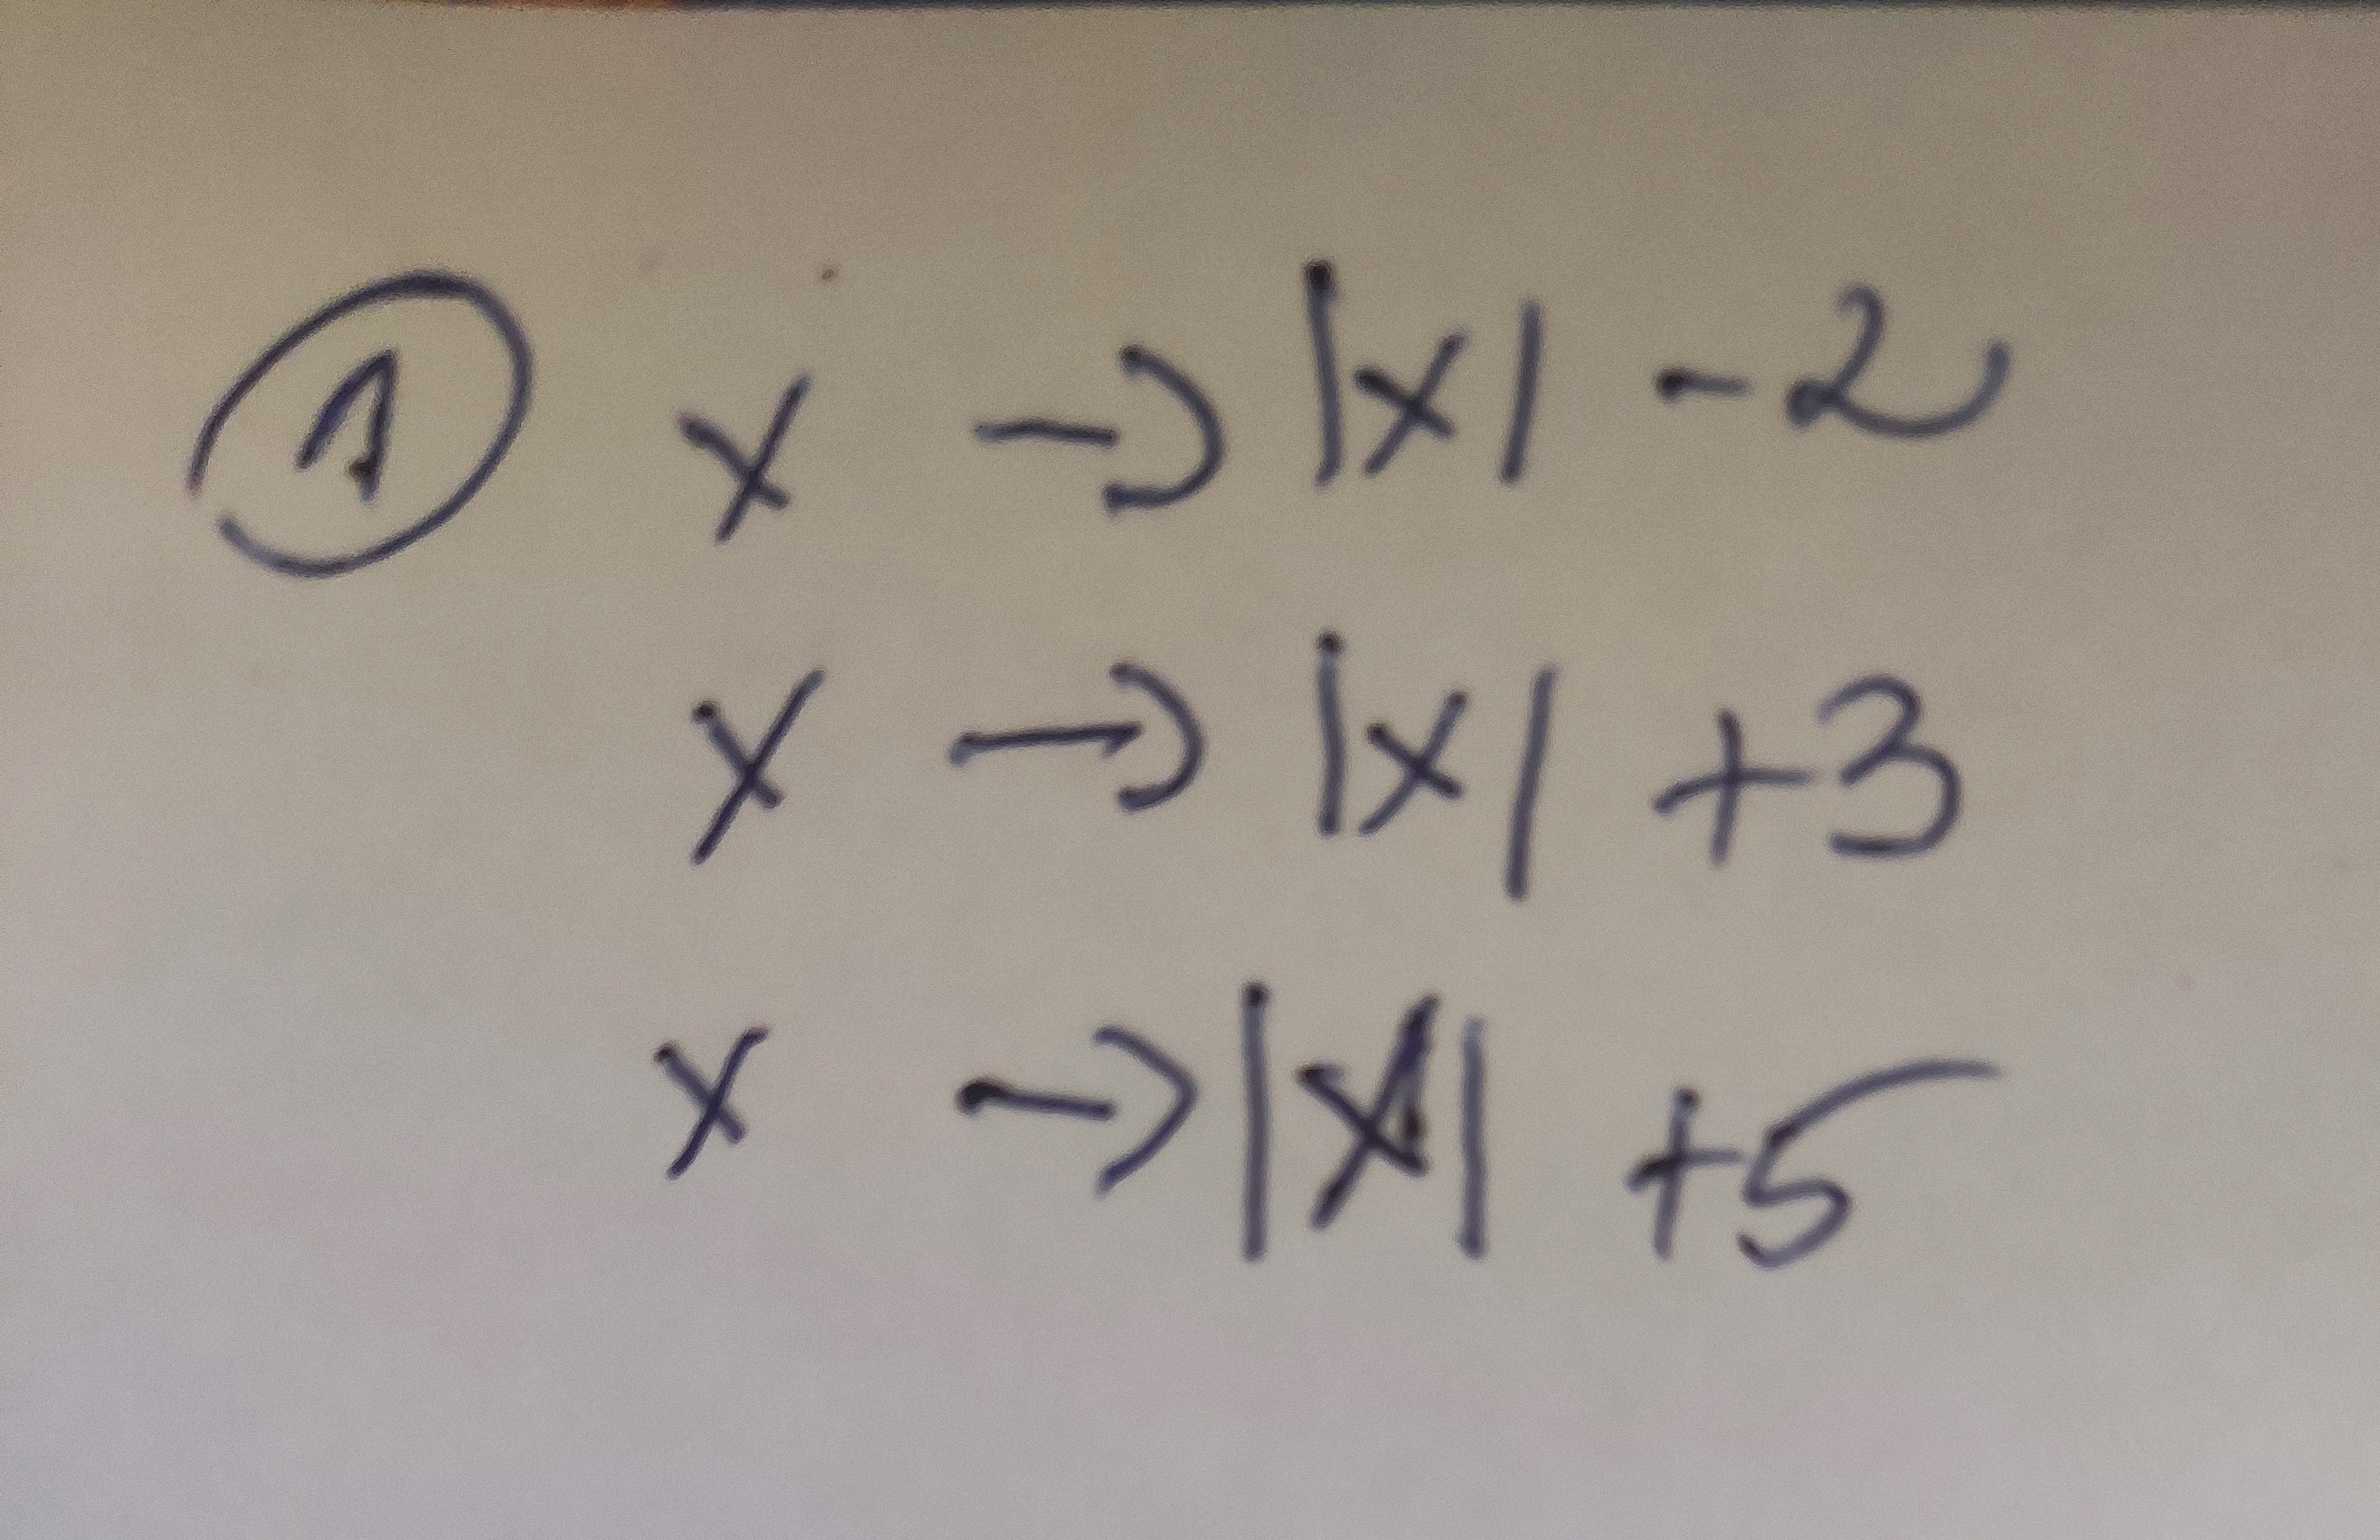 ① x → |x| - 2
x → |x| + 3
x → |x| + 5